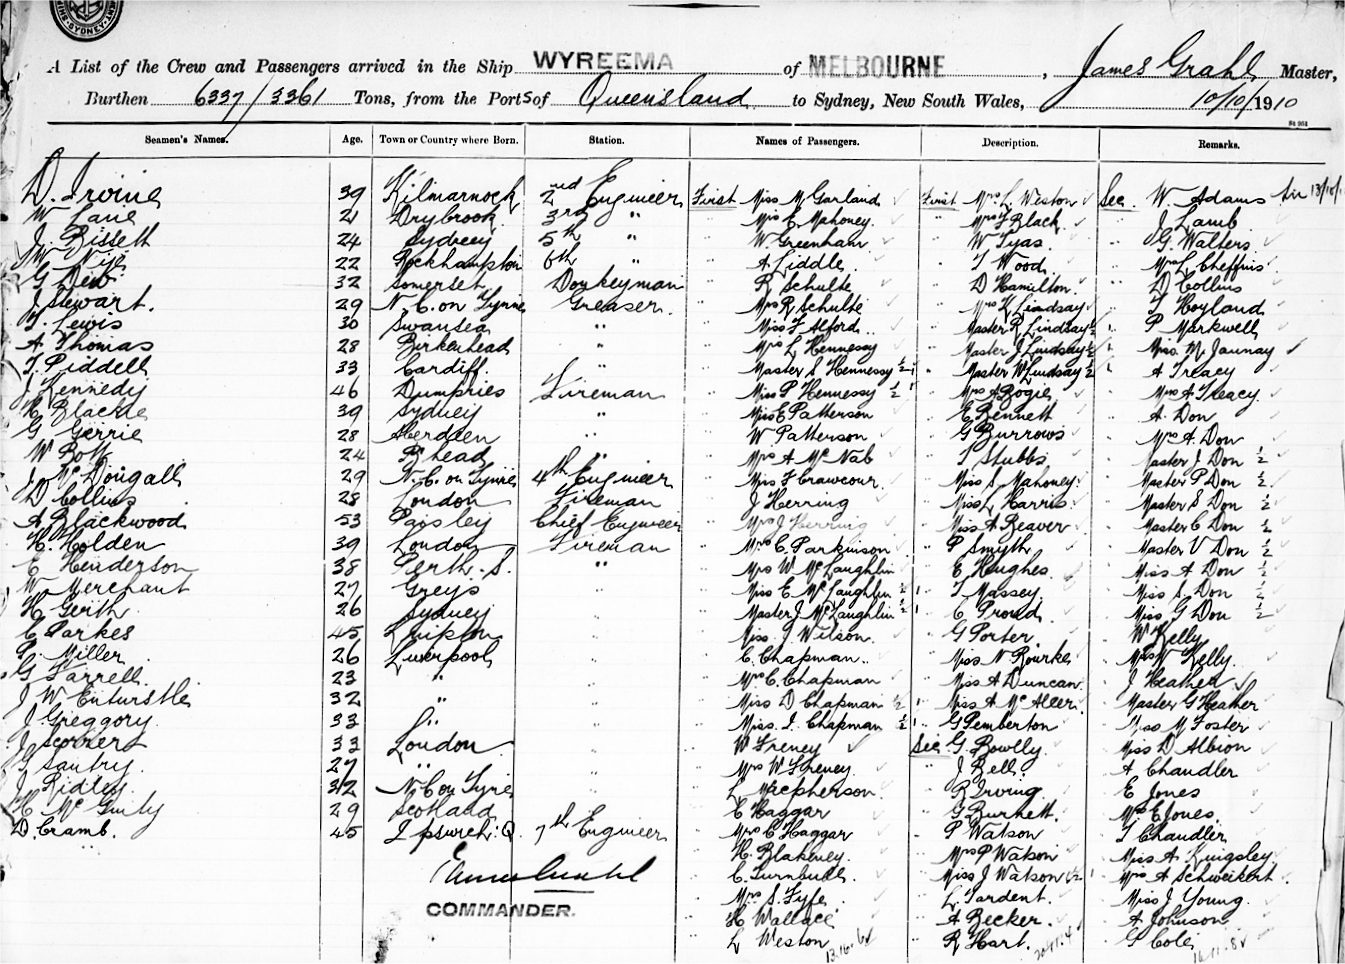 SYDNEY
A List of the Crew and Passengers arrived in the Ship WYREEMA of MELBOURNE, James Grahl Master,
Burthen 6337/3361 Tons, from the Ports of Queensland to Sydney, New South Wales, 10/10/1910
Seamen's Names. Age. Town or Country where Born. Station. Names of Passengers. Description. Remarks.
D. Irvine 39 Kilmarnock 2nd Engineer First Miss M Garland First Mrs L Weston See W. Adams
W Lane 21 Drybrook 3rd " " Miss E Mahoney " Mrs F Black " J Lamb
J. Bissett 24 Sydney 5th " " W Greenham " W Tyas " G. Walters
W Nye 22 Rockhampton 6th " " A Liddle " T Wood " Mrs L Cheffins
G Dew 32 Somerset Donkeyman " R Schulte " D Hamilton " D Collins
J Stewart. 29 N. C. on Tyne Greaser " Mrs R Schulte " Mrs K Lindsay " T Hoyland
T. Lewis 30 Swansea " " Miss F Alford " Master R Lindsay ½ " P Markwell
A Thomas 28 Birkenhead " " Mrs L Hennessy " Master J Lindsay ½ " Miss M. Jaunay
T. Piddell 33 Cardiff " " Master S Hennessy ½ " Master W Lindsay ½ " A Treacy
J Kennedy 46 Dumfries Fireman " Miss P Hennessy ½ " Mrs A Bogie " Mrs A Treacy
H Blackie 39 Sydney " " Miss E Patterson " E Bennett " A. Don
G Gerrie 28 Aberdeen " " W Patterson " G Burrows " Mrs A. Don
W Bott 24 B'head " " Mrs A McNab " T Stubbs " Master J Don ½
J McDougall 29 N. C. on Tyne 4th Engineer " Miss F Crawcour " Miss S Mahoney " Master P Don ½
D Collins 28 London Fireman " J Herring " Miss L Harris " Master S Don ½
A Blackwood 53 Paisley Chief Engineer " Mrs J Herring " Miss A Beaver " Master C Don ½
H. Holden 39 London Fireman " Mrs C. Parkinson " P Smyth " Master V Don ½
E Henderson 38 Perth. S. " " Mrs W McLaughlin " E Hughes " Miss A Don ½
W Merchant 27 Greys " " Miss E McLaughlin ½ " T Massey " Miss S Don ½
H Gerith 26 Sydney " " Master J McLaughlin ½ " C Proud " Miss G Don ½
C Parkes 45 " " Miss J Wilson " G Porter " W Kelly
P. Miller 26 Liverpool " " C. Chapman " Miss N Rourke " Mrs W Kelly
G Farrell 23 " " " Mrs C. Chapman " Miss A Duncan " J Heather
J W Enturstle 32 " " " Miss D Chapman ½ " Miss A McAleer " Master G Heather
J Greggory 33 " " " Miss I. Chapman ½ " G Pemberton " Miss M Foster
33 London " " W Freney See G. Bowlly " Miss D Albion
G Santry 27 " " " Mrs W Freney " J Bell " A Chandler
J Ridley 32 N. C on Tyne " " L Macpherson " R Irving " E Jones
29 Scotland " " C Haggar " G Burnett " Mrs E Jones
D. Cramb. 45 Ipswich: Q 7th Engineer " Mrs C Haggar " P Watson " T Chandler
" H. Blakeney " Mrs P Watson " Miss A Kingsley
James Grahl " C. Turnbull " Miss J Watson ½ " Mrs A Schweikert
COMMANDER. " Mrs S. Fyfe " L Tardent " Miss J Young
" H Wallace " A Becker " A Johnson
" L Weston " R Hart. " G Cole